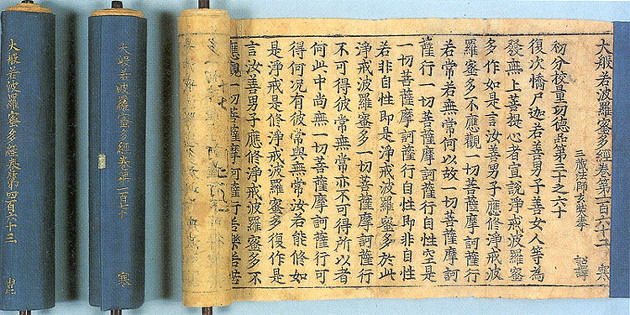 大般若波羅蜜多經卷第一百六十二 寒
三藏法師玄奘奉 詔譯
初分校量功德品第三十之六十
復次憍尸迦若善男子善女人等為
發無上菩提心者宣說淨戒波羅蜜
多作如是言汝善男子應修淨戒波
羅蜜多不應觀一切菩薩摩訶薩行
若常若無常何以故一切菩薩摩訶
薩行一切菩薩摩訶薩行自性空是
一切菩薩摩訶薩行自性即非自性
若非自性即是淨戒波羅蜜多於此
淨戒波羅蜜多一切菩薩摩訶薩行
不可得彼常無常亦不可得所以者
何此中尚無一切菩薩摩訶薩行可
得何況有彼常與無常汝若能修如
是淨戒是修淨戒波羅蜜多復作是
言汝善男子應修淨戒波羅蜜多不
應觀一切菩薩摩訶薩行若樂若苦
大般若波羅蜜多經卷第一百六十 寒
大般若波羅蜜多經卷第四百六十三 崑